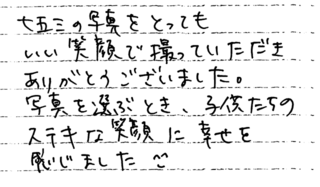 七五三の写真をとっても
いい笑顔で撮っていただき
ありがとうございました。
写真を選ぶとき、子供たちの
ステキな笑顔に幸せを
感じました